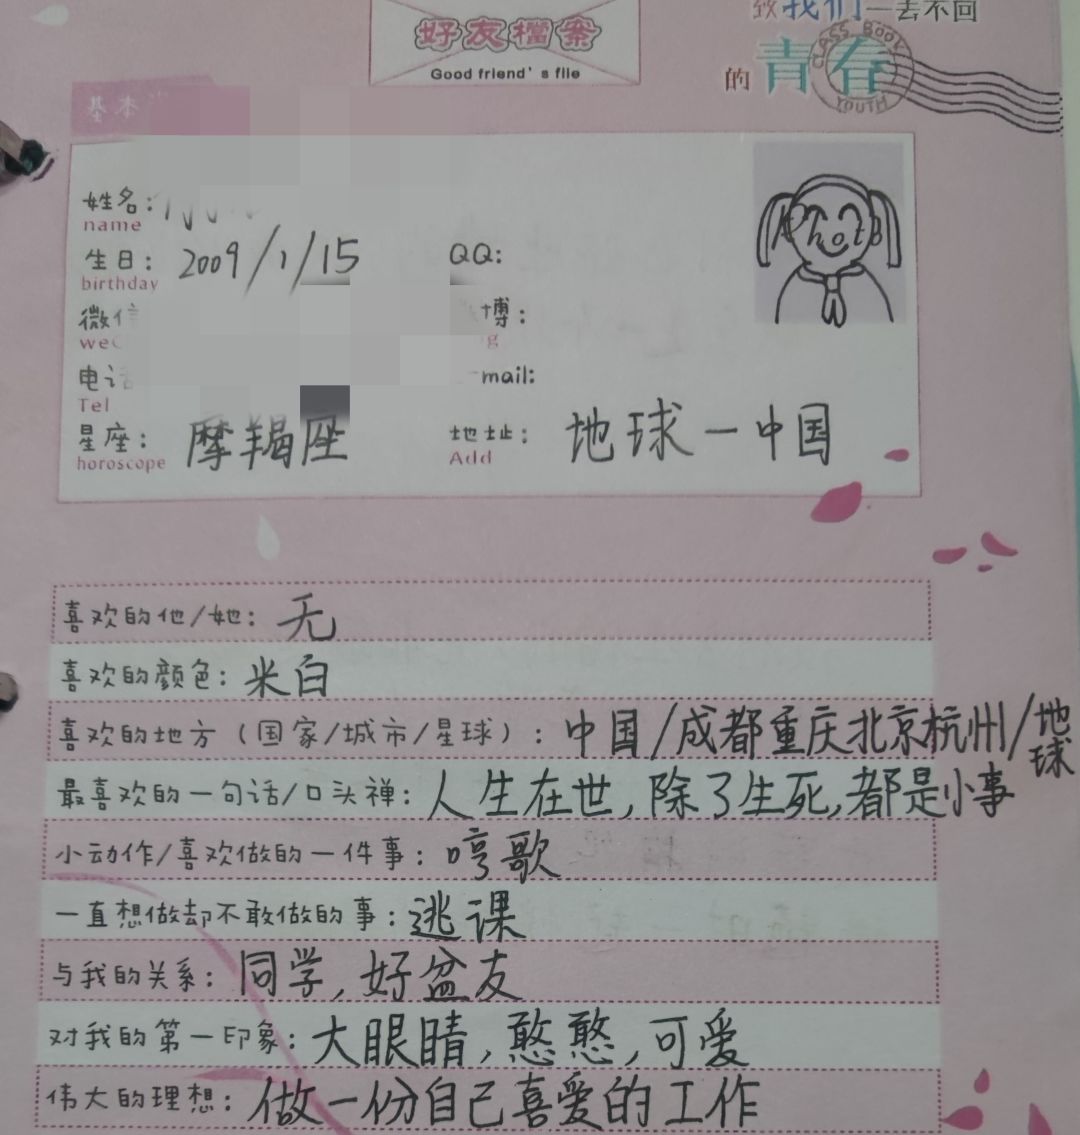 致我们一去不回
的青春
CLASS BOOK
YOUTH
好友檔案
Good friend's file
基本
姓名:
name
生日: 2009/1/15 QQ:
birthday
微信 博:
weC g
电话 mail:
Tel
星座: 摩羯座 地址: 地球一中国
horoscope Add
Photo
喜欢的他/她: 无
喜欢的颜色: 米白
喜欢的地方(国家/城市/星球): 中国/成都重庆北京杭州/地球
最喜欢的一句话/口头禅: 人生在世,除了生死,都是小事
小动作/喜欢做的一件事: 哼歌
一直想做却不敢做的事: 逃课
与我的关系: 同学,好盆友
对我的第一印象: 大眼睛,憨憨,可爱
伟大的理想: 做一份自己喜爱的工作